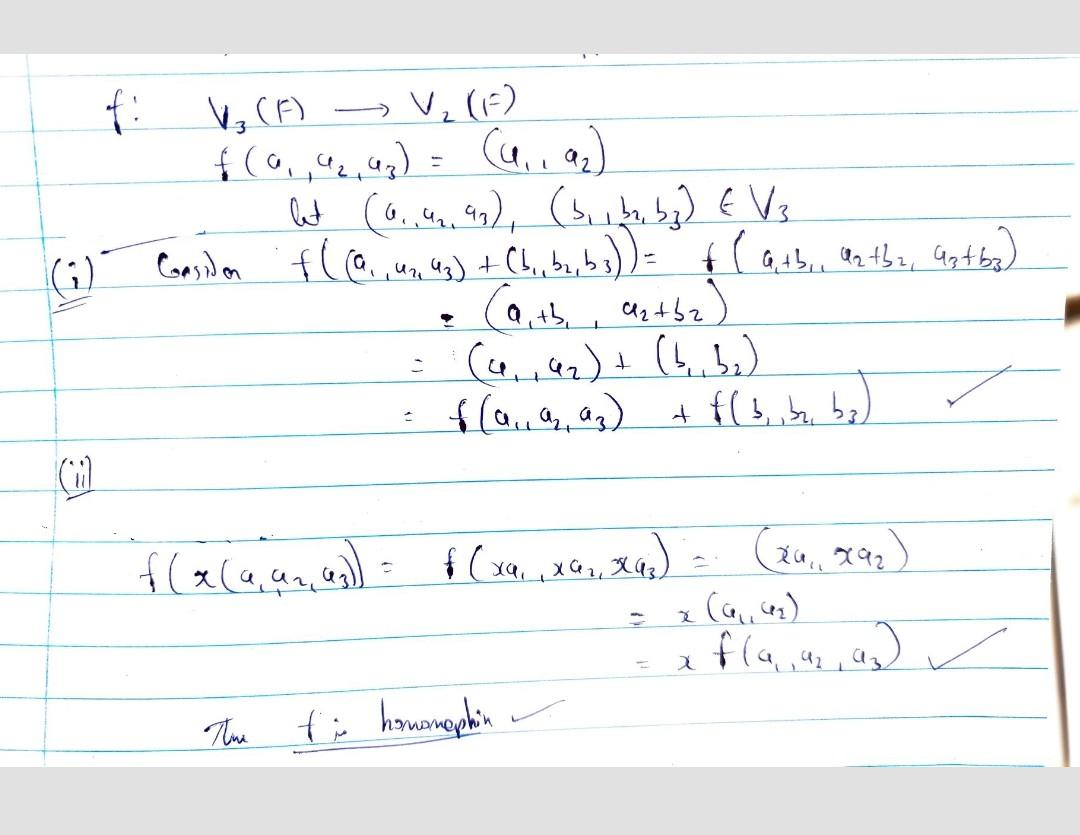 f: V₃(F) → V₂(F)
f(a₁, a₂, a₃) = (a₁, a₂)
let (a₁, a₂, a₃), (b₁, b₂, b₃) ∈ V₃
(i) Consider f((a₁, a₂, a₃) + (b₁, b₂, b₃)) = f(a₁+b₁, a₂+b₂, a₃+b₃)
= (a₁+b₁, a₂+b₂)
= (a₁, a₂) + (b₁, b₂)
= f(a₁, a₂, a₃) + f(b₁, b₂, b₃) ✓
(ii)
f(x(a₁, a₂, a₃)) = f(xa₁, xa₂, xa₃) = (xa₁, xa₂)
= x(a₁, a₂)
= x f(a₁, a₂, a₃) ✓
Thus f is homomorphism ✓